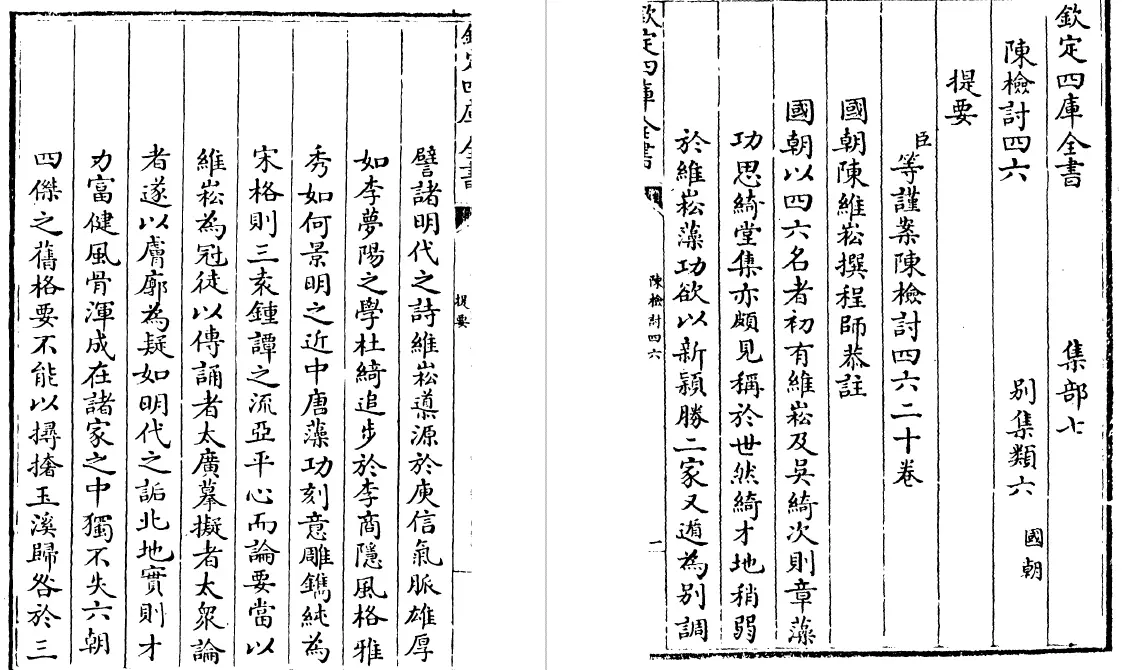 欽定四庫全書 集部七
陳檢討四六 别集類六 國朝
提要
臣等謹案陳檢討四六二十卷
國朝陳維崧撰程師恭註
國朝以四六名者初有維崧及吳綺次則章藻
功思綺堂集亦頗見稱於世然綺才地稍弱
於維崧藻功欲以新頴勝二家又遁為别調
欽定四庫全書
陳檢討四六
提要
一
譬諸明代之詩維崧導源於庾信氣脈雄厚
如李夢陽之學杜綺追步於李商隱風格雅
秀如何景明之近中唐藻功刻意雕鐫純為
宋格則三袁鍾譚之流亞平心而論要當以
維崧為冠徒以傳誦者太廣摹擬者太衆論
者遂以膚廓為疑如明代之詬北地實則才
力富健風骨渾成在諸家之中獨不失六朝
四傑之舊格要不能以撏撦玉溪歸咎於三